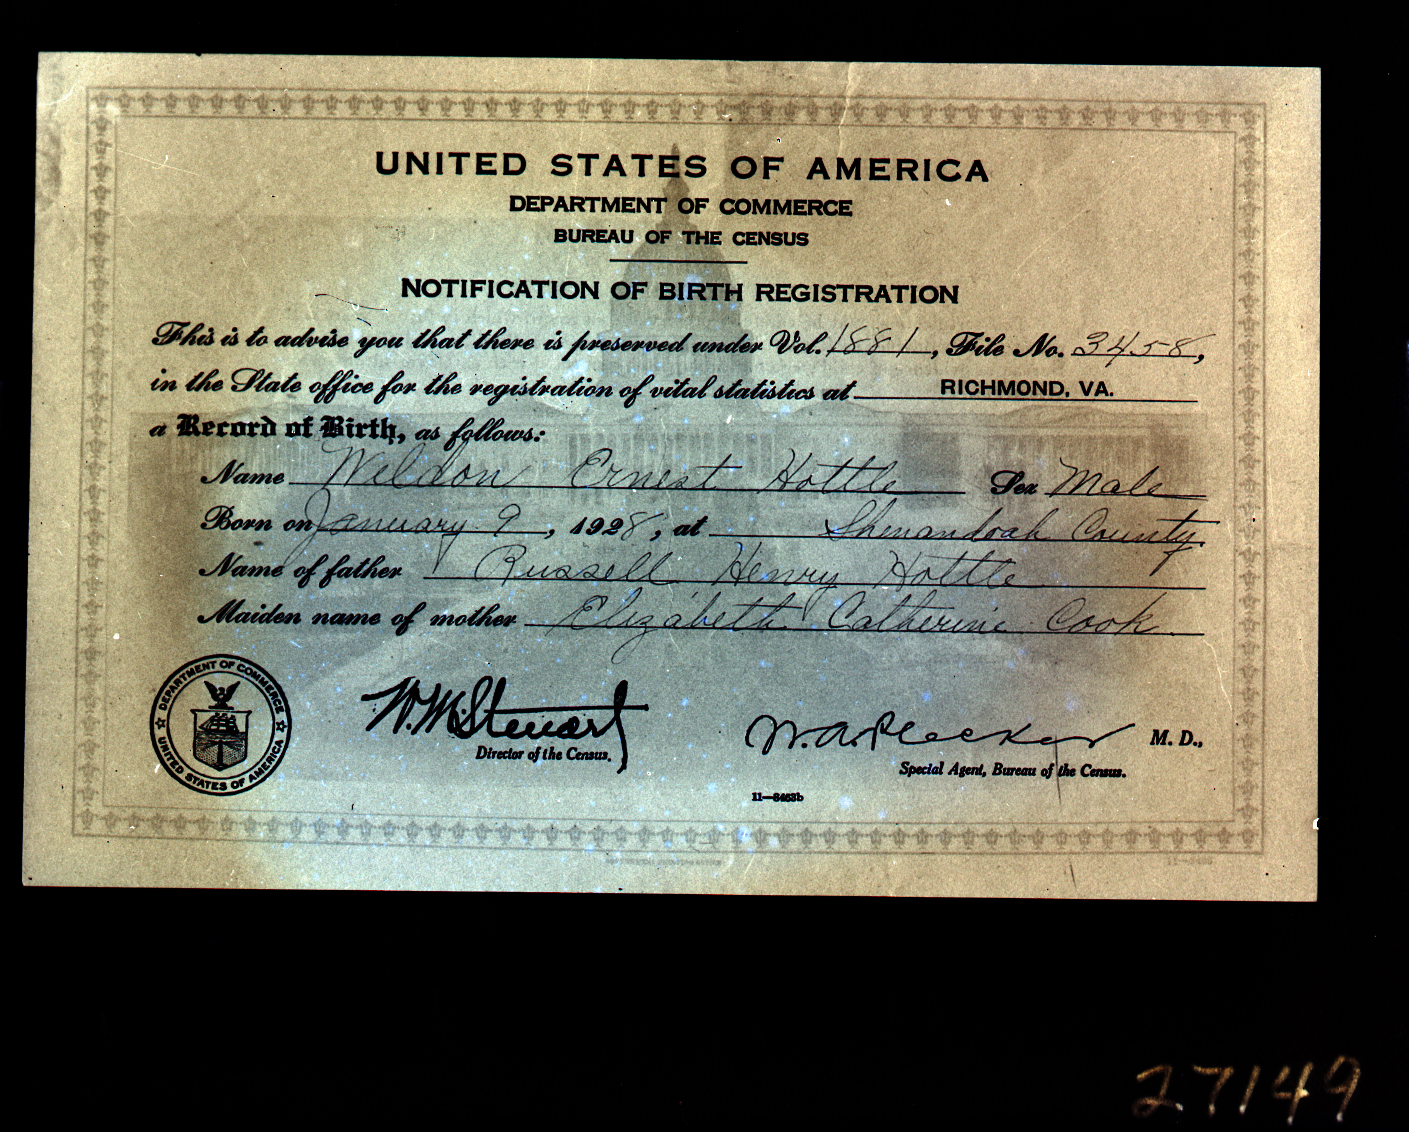 UNITED STATES OF AMERICA
DEPARTMENT OF COMMERCE
BUREAU OF THE CENSUS
NOTIFICATION OF BIRTH REGISTRATION
This is to advise you that there is preserved under Vol. 1881, File No. 3458,
in the State office for the registration of vital statistics at RICHMOND, VA.
a Record of Birth, as follows:
Name Weldon Ernest Hottle Sex Male
Born on January 9, 1928, at Shenandoah County.
Name of father Russell Henry Hottle
Maiden name of mother Elizabeth Catherine Cook
DEPARTMENT OF COMMERCE
UNITED STATES OF AMERICA
W. M. Steuart
Director of the Census.
W. A. Plecker M. D.,
Special Agent, Bureau of the Census.
11—8463b
27149